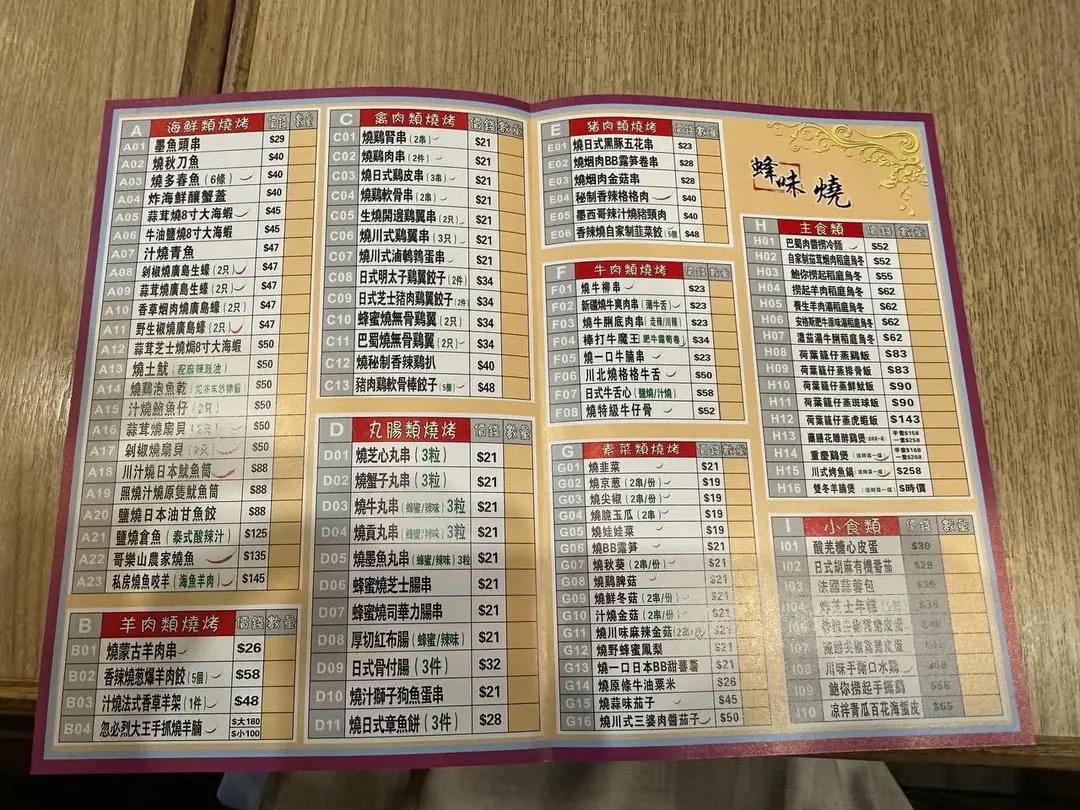 A 海鮮類燒烤 價錢 數量
A01 墨魚頭串 $29
A02 燒秋刀魚 $40
A03 燒多春魚(6條) $40
A04 炸海鮮釀蟹蓋 $40
A05 蒜茸燒8寸大海蝦 $45
A06 牛油鹽燒8寸大海蝦 $45
A07 汁燒青魚 $47
A08 剁椒燒廣島生蠔(2只) $47
A09 蒜茸燒廣島生蠔(2只) $47
A10 香草烟肉燒廣島蠔(2只) $47
A11 野生椒燒廣島蠔(2只) $47
A12 蒜茸芝士燒焗8寸大海蝦 $50
A13 燒土魷 $50
A14 燒鷄泡魚乾 $50
A15 汁燒鮑魚仔(2只) $50
A16 蒜茸燒扇貝(2只) $50
A17 剁椒燒扇貝(2只) $50
A18 川汁燒日本魷魚筒 $88
A19 照燒汁燒原隻魷魚筒 $88
A20 鹽燒日本油甘魚鮫 $88
A21 鹽燒倉魚(泰式酸辣汁) $125
A22 哥樂山農家燒魚 $135
A23 私房燒魚咬羊(海魚羊肉) $145
B 羊肉類燒烤 價錢 數量
B01 燒蒙古羊肉串 $26
B02 香辣燒葱爆羊肉餃(5個) $58
B03 汁燒法式香草羊架(1件) $48
B04 忽必烈大王手抓燒羊腩 $大180 $小100
C 禽肉類燒烤 價錢 數量
C01 燒鷄腎串(2串) $21
C02 燒鷄肉串(2件) $21
C03 燒日式鷄皮串(3串) $21
C04 燒鷄軟骨串(2串) $21
C05 生燒開邊鷄翼串(2只) $21
C06 燒川式鷄翼串(3只) $21
C07 燒川式滷鵪鶉蛋串 $21
C08 日式明太子鷄翼餃子(2件) $34
C09 日式芝士豬肉鷄翼餃子(2件) $34
C10 蜂蜜燒無骨鷄翼(2只) $34
C11 巴蜀燒無骨鷄翼(2只) $34
C12 燒秘制香辣鷄扒 $40
C13 豬肉鷄軟骨棒餃子(5個) $48
D 丸腸類燒烤 價錢 數量
D01 燒芝心丸串(3粒) $21
D02 燒蟹子丸串(3粒) $21
D03 燒牛丸串(蜂蜜/辣味)3粒 $21
D04 燒貢丸串(蜂蜜/辣味)3粒 $21
D05 燒墨魚丸串(蜂蜜/辣味)3粒 $21
D06 蜂蜜燒芝士腸串 $21
D07 蜂蜜燒司華力腸串 $21
D08 厚切紅布腸(蜂蜜/辣味) $21
D09 日式骨付腸(3件) $32
D10 燒汁獅子狗魚蛋串 $21
D11 燒日式章魚餅(3件) $28
E 猪肉類燒烤 價錢 數量
E01 燒日式黑豚五花串 $23
E02 燒烟肉BB露笋卷串 $28
E03 燒烟肉金菇串 $28
E04 秘制香辣格格肉 $40
E05 墨西哥辣汁燒豬頸肉 $40
E06 香辣燒自家制韮菜餃(5個) $48
F 牛肉類燒烤 價錢 數量
F01 燒牛柳串 $23
F02 新疆燒牛爽肉串(薄牛舌) $23
F03 燒牛脷底肉串 $23
F04 棒打牛魔王(肥牛露荀卷) $34
F05 燒一口牛腩串 $23
F06 川北燒格格牛舌 $50
F07 日式牛舌心(鹽燒/汁燒) $58
F08 燒特級牛仔骨 $52
G 素菜類燒烤 價錢 數量
G01 燒韭菜 $21
G02 燒京葱(2串/份) $19
G03 燒尖椒(2串/份) $19
G04 燒脆玉瓜(2串) $19
G05 燒娃娃菜 $19
G06 燒BB露笋 $21
G07 燒秋葵(2串/份) $21
G08 燒鷄脾菇 $21
G09 燒鮮冬菇(2串/份) $21
G10 汁燒金菇(2串/份) $21
G11 燒川味麻辣金菇(2串/份) $21
G12 燒野蜂蜜鳳梨 $21
G13 燒一口日本BB甜薯 $21
G14 燒原條牛油粟米 $26
G15 燒蒜味茄子 $45
G16 燒川式三婆肉醬茄子 $50
蜂味燒
H 主食類 價錢 數量
H01 巴蜀肉醬撈冷麵 $52
H02 自家制茄茸烟肉稻庭烏冬 $52
H03 鮑你撈起稻庭烏冬 $55
H04 撈起羊肉稻庭烏冬 $62
H05 養生羊肉湯稻庭烏冬 $62
H06 安格斯肥牛原味湯稻庭烏冬 $62
H07 濃茄湯牛脷稻庭烏冬 $62
H08 荷葉籠仔蒸鷄飯 $83
H09 荷葉籠仔蒸排骨飯 $83
H10 荷葉籠仔蒸鮮魷飯 $90
H11 荷葉籠仔蒸斑球飯 $90
H12 荷葉籠仔蒸虎蝦飯 $143
H13 藥膳花雕醉鷄煲 半隻$158 一隻$258
H14 重慶鷄煲 半隻$168 一隻$268
H15 川式烤魚鍋 $258
H16 雙冬羊腩煲 $時價
I 小食類 價錢 數量
I01 酸羌糖心皮蛋 $30
I02 日式胡麻有機番茄 $29
I03 法國蒜蓉包
I04 炸芝士年糕
I07
I08 川味手撕口水鷄
I09 鮑你撈起手撕鷄
I10 凉拌青瓜百花海蜇皮 $65